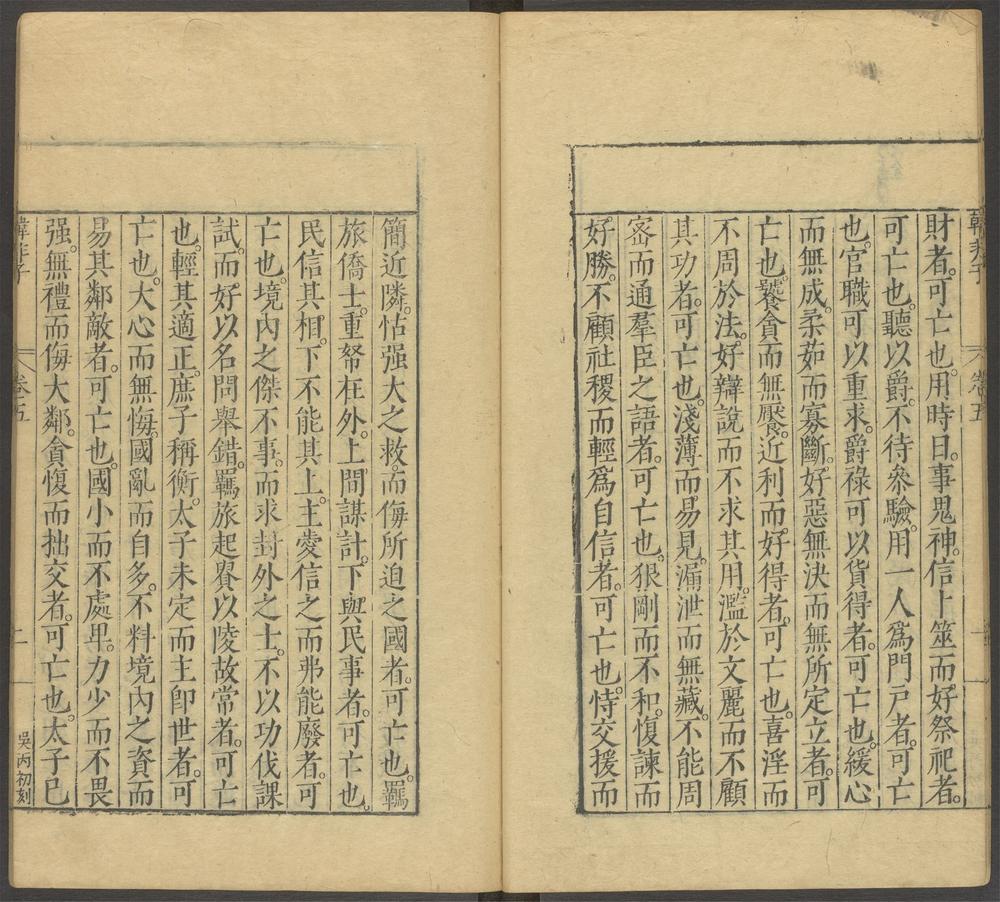 韓非子 卷五 一
財者。可亡也。用時日。事鬼神。信卜筮而。好祭祀者。
可亡也。聽以爵。不待參驗。用一人爲門戸者。可亡
也。官職可以重求。爵祿可以貨得者。可亡也。緩心
而無成。柔茹而寡斷。好惡無決而無所定立者。可
亡也。饕貪而無饜。近利而。好得者。可亡也。喜淫而
不周於法。好辯說而不求其用。濫於文麗而不顧
其功者。可亡也。淺薄而。易見。漏泄而無藏。不能周
宻而通羣臣之語者。可亡也。狠剛而不和。愎諫而
好勝。不顧社稷而輕爲自信者。可亡也。恃交援而
簡近隣。怙强大之救。而侮所迫之國者。可亡也。羈
旅僑士。重帑在外。上間謀計。下與民事者。可亡也。
民信其相。下不能其上。主愛信之而弗能廢者。可
亡也。境內之傑不事。而求封外之士。不以功伐課
試。而。好以名問舉錯。羈旅起貴以陵故常者。可亡
也。輕其適正。庶子稱衡。太子未定而主卽世者。可
亡也。大心而無悔。國亂而自多。不料境內之資而
易其鄰敵者。可亡也。國小而不處卑。力少而不畏
强。無禮而侮大鄰。貪愎而拙交者。可亡也。太子已
韓非子 卷五 二 吳丙初刻